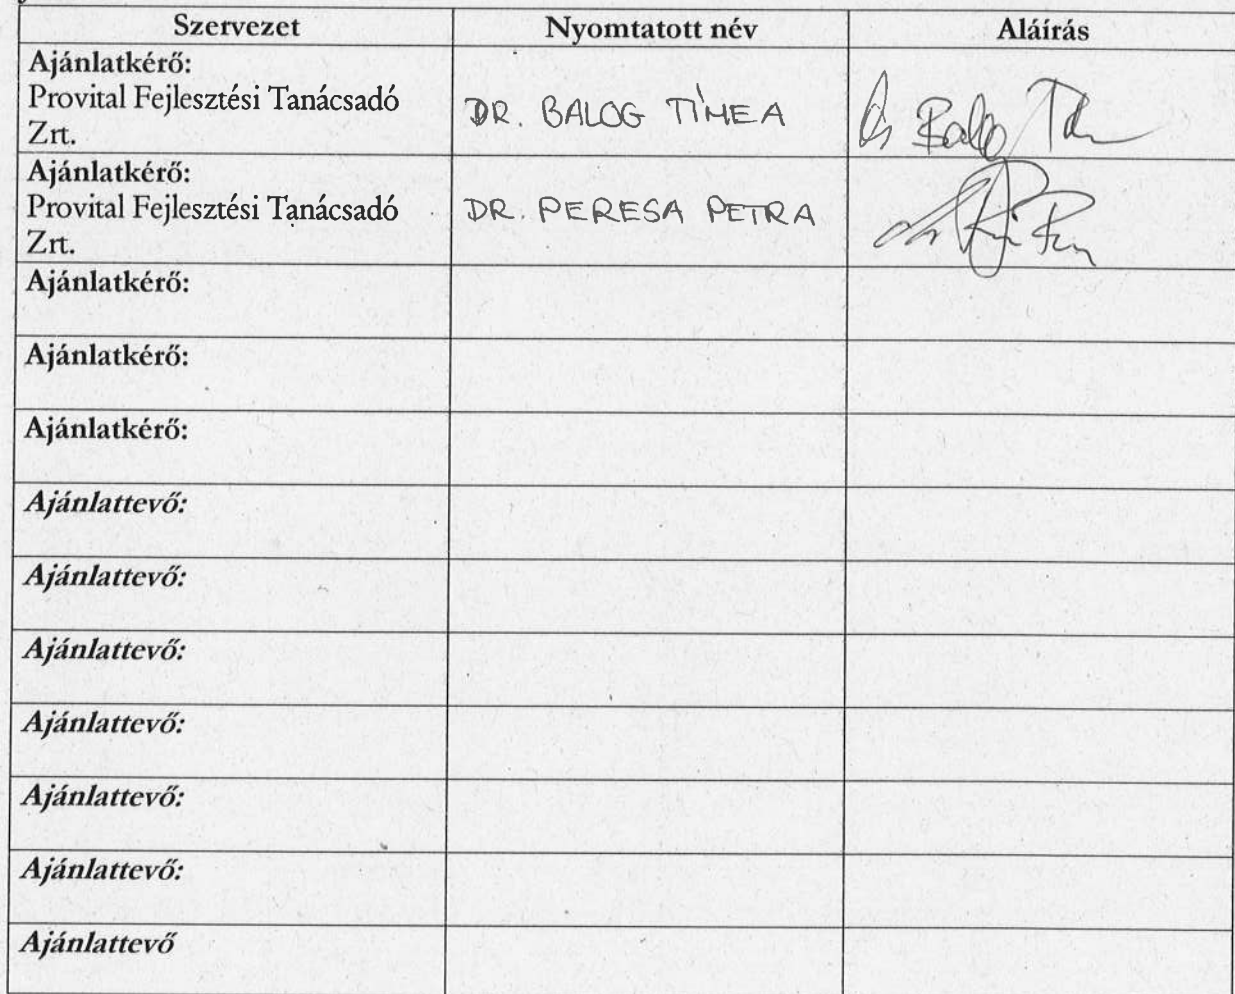 Szervezet Nyomtatott név Aláírás
Ajánlatkérő:
Provital Fejlesztési Tanácsadó
Zrt.
DR. BALOG TÍMEA
Ajánlatkérő:
Provital Fejlesztési Tanácsadó
Zrt.
DR. PERESA PETRA
Ajánlatkérő:
Ajánlatkérő:
Ajánlatkérő:
Ajánlattevő:
Ajánlattevő:
Ajánlattevő:
Ajánlattevő:
Ajánlattevő:
Ajánlattevő:
Ajánlattevő